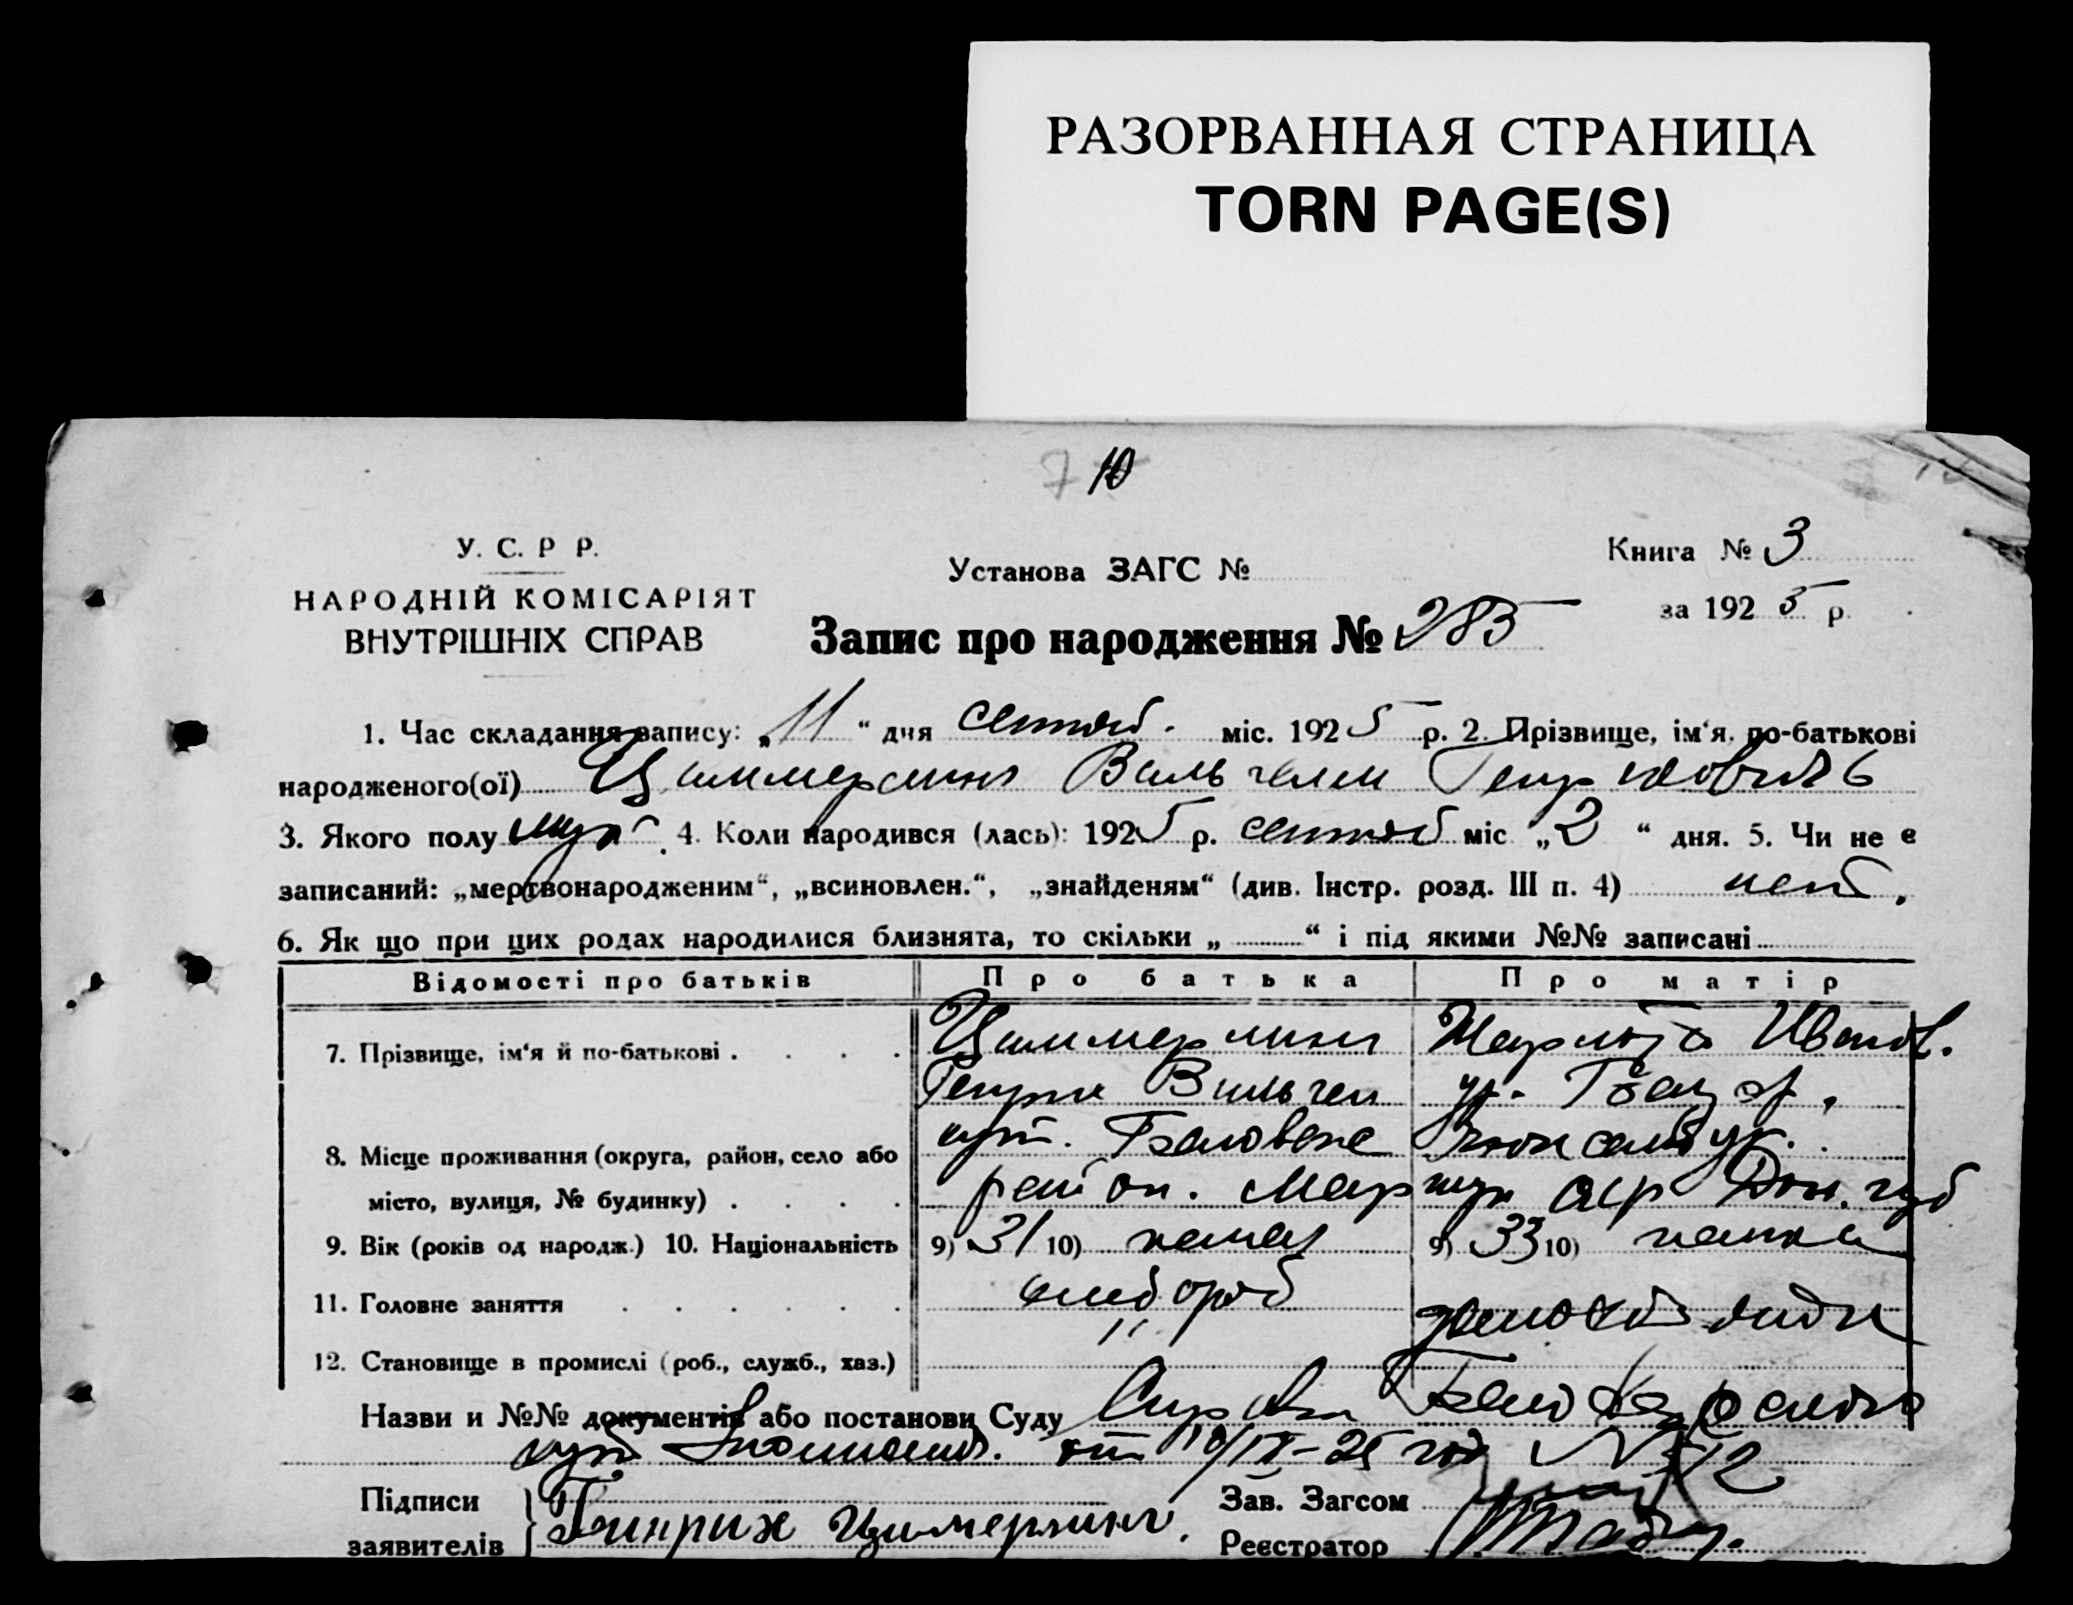 РАЗОРВАННАЯ СТРАНИЦА
TORN PAGE(S)
7 10
У. С. Р Р.
НАРОДНІЙ КОМІСАРІЯТ
ВНУТРІШНІХ СПРАВ
Установа ЗАГС №
Запис про народження № 285
Книга № 3
за 192 5 р.
1. Час складання запису: „ 11 “ дня сентяб. міс. 192 5 р. 2. Прізвище, ім‘я, по-батькові
народженого(ої) Циммерлинг Вильгелм Генрихович
3. Якого полу муж 4. Коли народився (лась): 192 5 р. сентяб міс „ 2 “ дня. 5. Чи не є
записаний: „мертвонародженим“, „всиновлен.“, „знайденям“ (див. Інстр. розд. III п. 4) нет.
6. Як що при цих родах народилися близнята, то скільки „ “ і під якими №№ записані
Відомості про батьків Про батька Про матір
7. Прізвище, ім‘я й по-батькові Циммерлинг Иванов.
Генрих Вильгел
8. Місце проживання (округа, район, село або
місто, вулиця, № будинку) район. Мар Дон. губ
9. Вік (років од народж.) 10. Національність 9) 31 10) немец 9) 33 10) немка
11. Головне заняття хлебороб
12. Становище в промислі (роб., служб., хаз.) "
Назви и №№ документів або постанови Суду
от 10/IX-25 год №
Підписи
заявителів Генрих Цимерлинг.
Зав. Загсом
Реєстратор